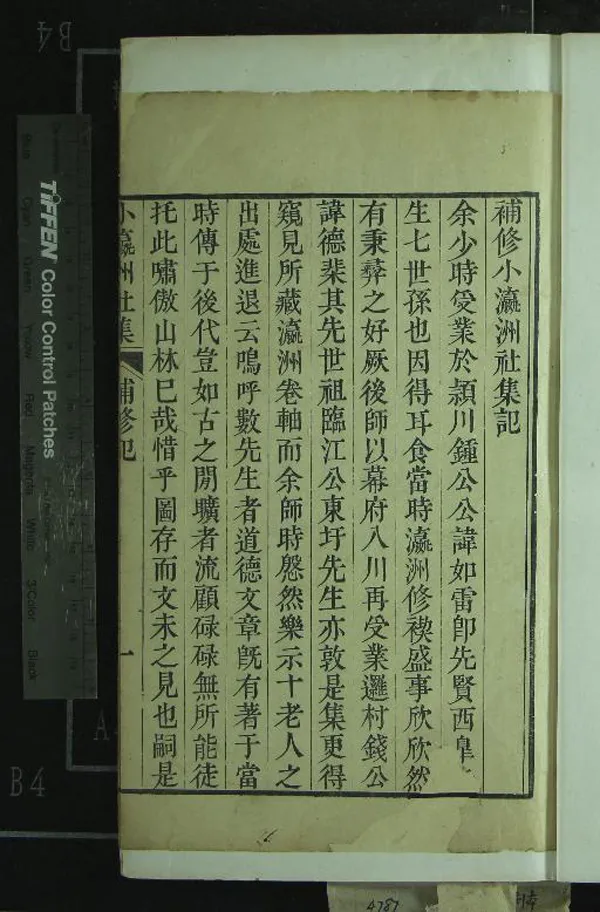 補修小瀛洲社集記
余少時受業於潁川鍾公公諱如雷卽先賢西臯
生七世孫也因得耳食當時瀛洲修禊盛事欣欣然
有秉彜之好厥後師以幕府入川再受業邏村錢公
諱德棐其先世祖臨江公東圩先生亦敦是集更得
窺見所藏瀛洲卷軸而余師時慇然樂示十老人之
出處進退云嗚呼數先生者道德文章旣有著于當
時傳于後代豈如古之閒曠者流顧碌碌無所能徒
托此嘯傲山林已哉惜乎圖存而文未之見也嗣是
小瀛州社集 補修記 一
TIFFEN Color Control Patches
B4
B4
A
4787